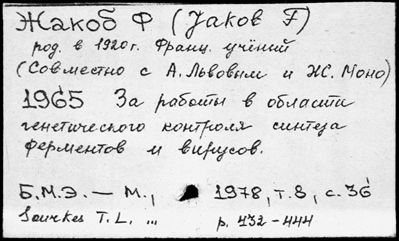 Жакоб Ф (Jakob F)
род. в 1920г. Франц. учёный
(Совместно с А. Львовым и Ж. Моно)
1965 За работы в области
генетического контроля синтеза
ферментов и вирусов.
Б.М.Э. — М., 1978, т. 8, с. 36
Sourkes T. L. ... p. 432-444